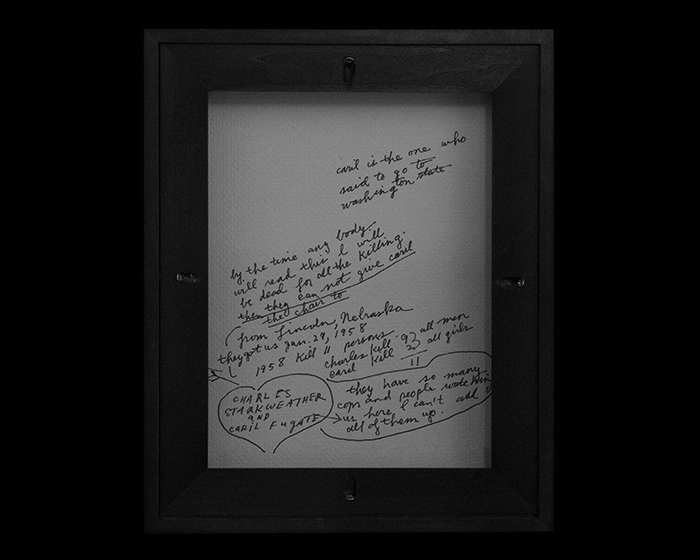 caril is the one who
said to go to
washington state
by the time any body
will read this I will
be dead for all the killing.
then they can not give caril
the chair to
from Lincoln, Nebraska
they got us Jan. 29, 1958
1958 kill 11 persons
charles kill 9 } all men
caril kill 2 } all girls
11
they have so many
cops and people
us here I can't add
all of them up.
CHARLES
STARKWEATHER
and
CARIL FUGATE